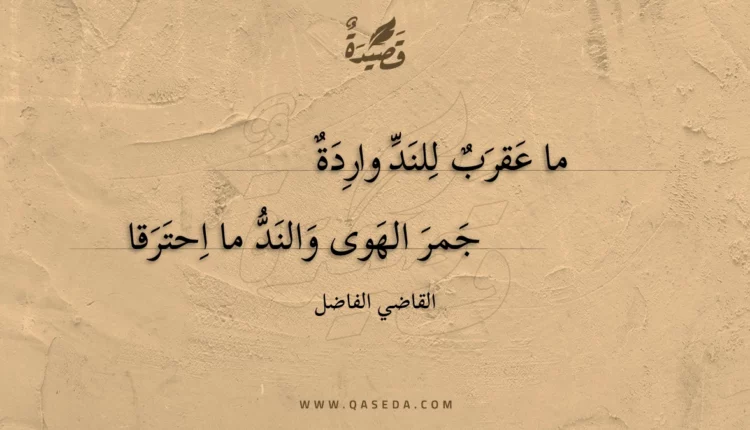 قَصِيدَةٌ
ما عَقرَبٌ لِلنَدِّ وارِدَةٌ
جَمرَ الهَوى وَالنَدُّ ما اِحتَرَقا
القاضي الفاضل
WWW.QASEDA.COM